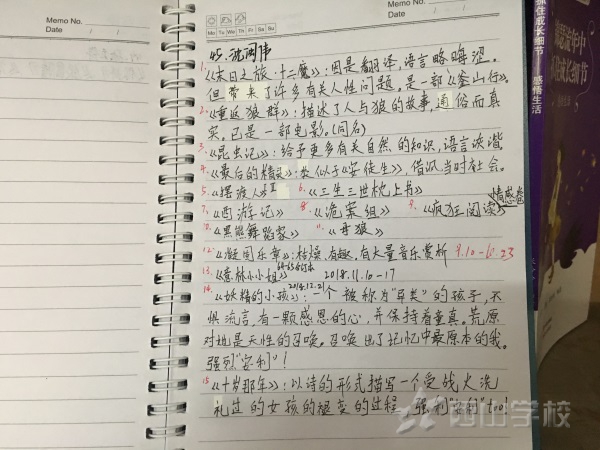 Memo No.
Date / /
Memo No.
Mo Tu We Th Fr Sa Su
Date / /
1.《末日之旅·十二魔》:因是翻译,语言略晦涩。
但带来了许多有关人性问题。是一部《釜山行》。
2.《重返狼群》:描述了人与狼的故事,通俗而真
实,已是一部电影。(同名)
3.《昆虫记》:给予更多有关自然的知识,语言诙谐
4.《最后的精灵》:类似于《安徒生》,借讽当时社会。
5.《摆渡人》Ⅱ 6.《三生三世枕上书》
7.《西游记》 8.《诡案组》 9.《疯狂阅读》情感卷
10.《黑熊舞蹈家》 11.《母狼》
12.《凝固乐章》:枯燥,有趣,有大量音乐赏析 9.10-10.23
13.《意林小小姐》合订本 2018.11.10-17
14.《妖精的小孩》2018.12.21:一个被称为"异类"的孩子,不
惧流言,有一颗感恩的心,并保持着童真。荒原
对她是天性的召唤。召唤出了记忆中最原本的我。
强烈"安利"!
15《十岁那年》:以诗的形式描写一个受战火洗
礼过的女孩的蜕变的过程 强烈"安利"too!
抓住成长细节
感悟生活
流年中
住成长细节
西山学校